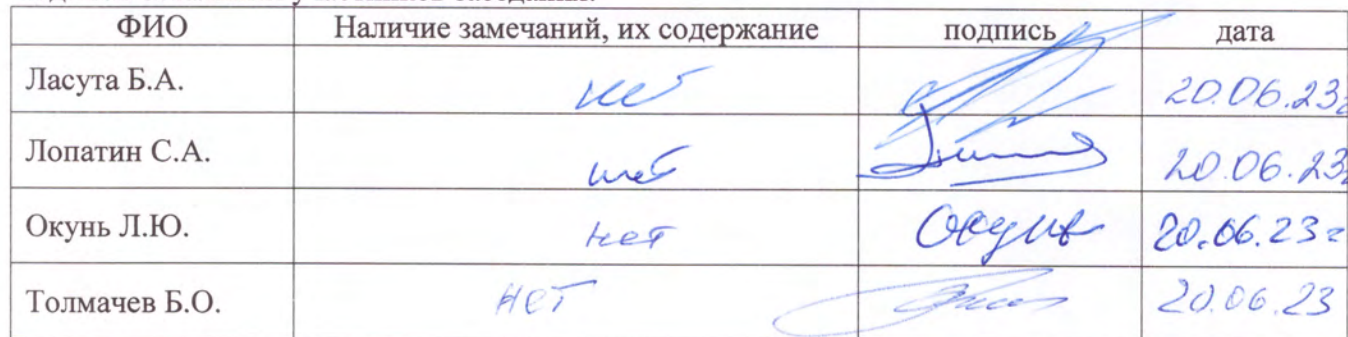 ФИО Наличие замечаний, их содержание подпись дата
Ласута Б.А. нет 20.06.23г
Лопатин С.А. нет 20.06.23г
Окунь Л.Ю. нет Окунь 20.06.23г
Толмачев Б.О. нет 20.06.23